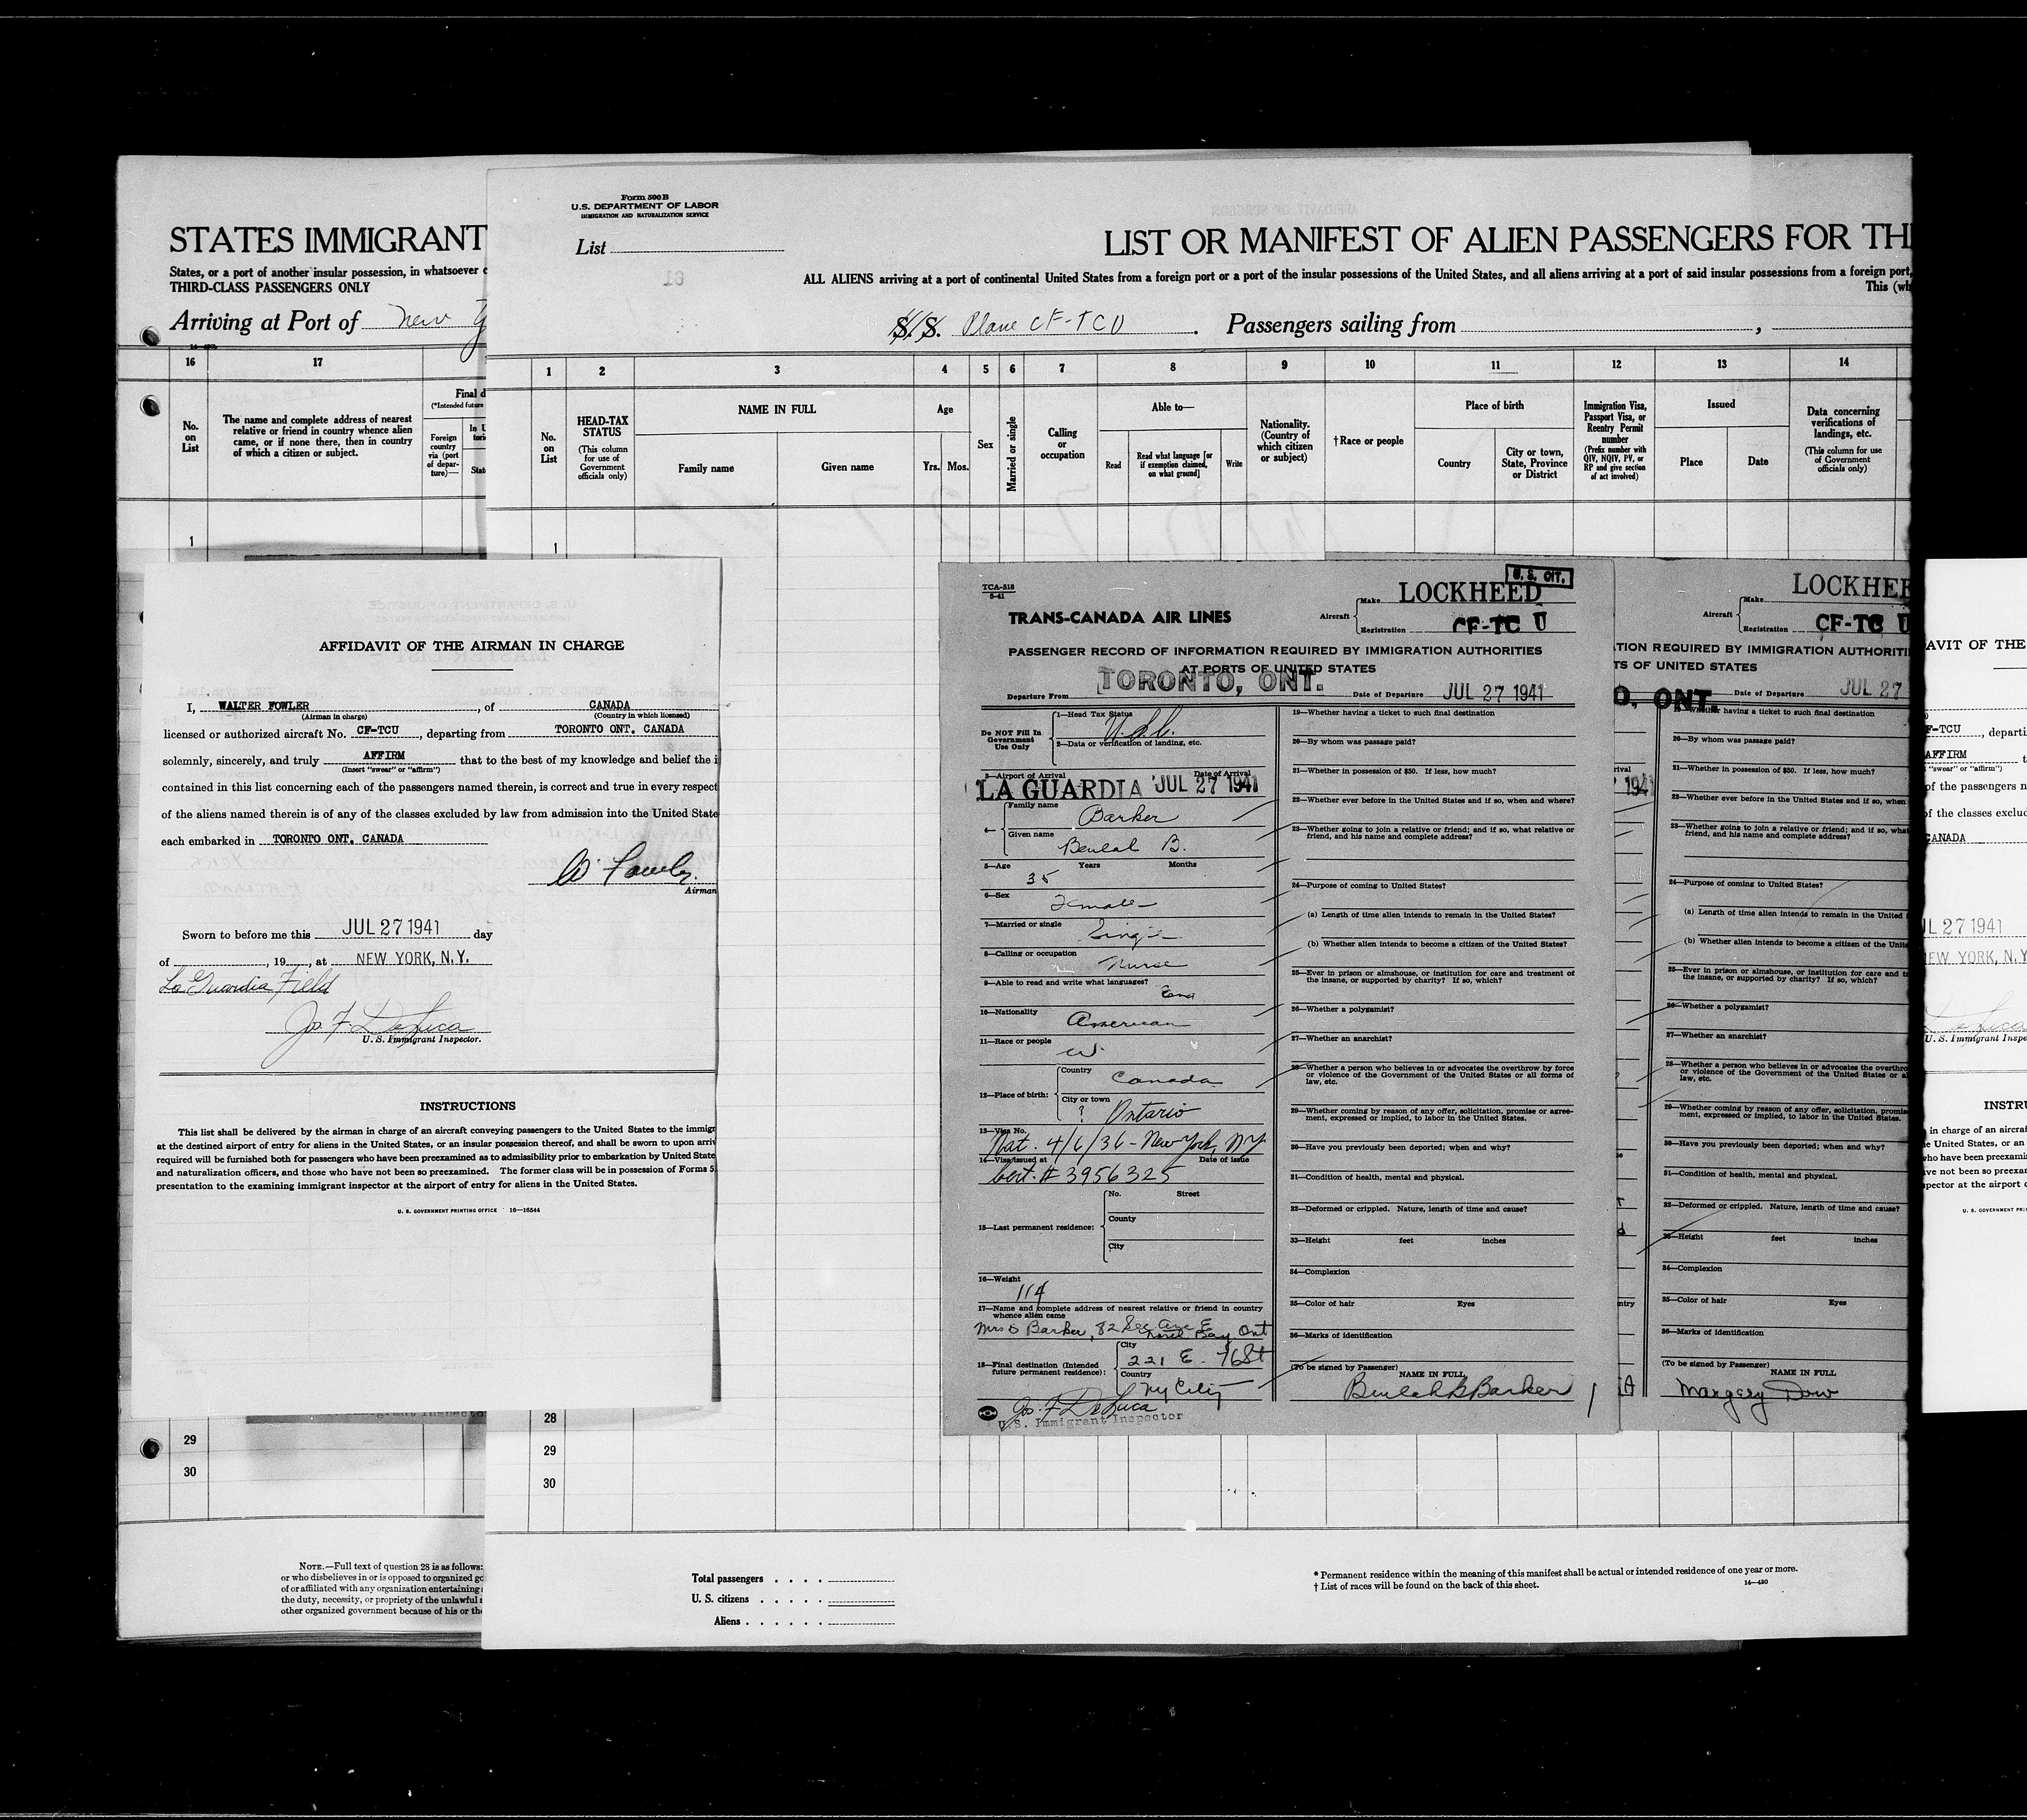 STATES IMMIGRANT
States, or a port of another insular possession, in whatsoever c
THIRD-CLASS PASSENGERS ONLY
Arriving at Port of New Y
16
17
No. on List
The name and complete address of nearest relative or friend in country whence alien came, or if none there, then in country of which a citizen or subject.
Final d
(*Intended future
Foreign country via (port of depar-ture)—
In U
tori
Stat
1
29
30
NOTE.—Full text of question 28 is as follows:
or who disbelieves in or is opposed to organized go
of or affiliated with any organization entertaining
the duty, necessity, or propriety of the unlawful
other organized government because of his or the
Form 500 B
U.S. DEPARTMENT OF LABOR
IMMIGRATION AND NATURALIZATION SERVICE
List
LIST OR MANIFEST OF ALIEN PASSENGERS FOR TH
ALL ALIENS arriving at a port of continental United States from a foreign port or a port of the insular possessions of the United States, and all aliens arriving at a port of said insular possessions from a foreign port,
This (wh
S. S. Plane CF-TCU. Passengers sailing from ,
1 2 3 4 5 6 7 8 9 10 11 12 13 14
No. on List
HEAD-TAX STATUS
(This column for use of Government officials only)
NAME IN FULL
Family name
Given name
Age
Yrs. Mos.
Sex
Married or single
Calling or occupation
Able to—
Read
Read what language [or if exemption claimed, on what ground]
Write
Nationality. (Country of which citizen or subject)
†Race or people
Place of birth
Country
City or town, State, Province or District
Immigration Visa, Passport Visa, or Reentry Permit number
(Prefix number with QIV, NQIV, PV, or RP and give section of act involved)
Issued
Place
Date
Data concerning verifications of landings, etc.
(This column for use of Government officials only)
1
28
29
30
Total passengers . . . .
U. S. citizens . . . . .
Aliens . . . . . .
* Permanent residence within the meaning of this manifest shall be actual or intended residence of one year or more.
† List of races will be found on the back of this sheet.
14—420
AFFIDAVIT OF THE AIRMAN IN CHARGE
I, WALTER FOWLER, of CANADA
(Airman in charge) (Country in which licensed)
licensed or authorized aircraft No. CF-TCU, departing from TORONTO ONT. CANADA
solemnly, sincerely, and truly AFFIRM that to the best of my knowledge and belief the i
(Insert "swear" or "affirm")
contained in this list concerning each of the passengers named therein, is correct and true in every respect
of the aliens named therein is of any of the classes excluded by law from admission into the United State
each embarked in TORONTO ONT. CANADA
W. Fowler.
Airman
Sworn to before me this JUL 27 1941 day
of , 19 , at NEW YORK, N.Y.
La Guardia Field
Jos. F. DeLuca
U. S. Immigrant Inspector.
INSTRUCTIONS
This list shall be delivered by the airman in charge of an aircraft conveying passengers to the United States to the immigr
at the destined airport of entry for aliens in the United States, or an insular possession thereof, and shall be sworn to upon arriv
required will be furnished both for passengers who have been preexamined as to admissibility prior to embarkation by United State
and naturalization officers, and those who have not been so preexamined. The former class will be in possession of Forms 5
presentation to the examining immigrant inspector at the airport of entry for aliens in the United States.
U. S. GOVERNMENT PRINTING OFFICE 16—16544
TCA-518
5-41
U. S. CIT.
TRANS-CANADA AIR LINES
Aircraft
Make LOCKHEED
Registration CF-TC U
PASSENGER RECORD OF INFORMATION REQUIRED BY IMMIGRATION AUTHORITIES
AT PORTS OF UNITED STATES
Departure From TORONTO, ONT. Date of Departure JUL 27 1941
Do NOT Fill In Government Use Only
1—Head Tax Status
2—Data or verification of landing, etc.
3—Airport of Arrival Date of Arrival
LA GUARDIA JUL 27 1941
4— Family name Barker
Given name Beulah B.
5—Age Years Months
35
6—Sex Female
7—Married or single Single
8—Calling or occupation Nurse
9—Able to read and write what languages? Eng
10—Nationality American
11—Race or people W
12—Place of birth: Country Canada
City or town ? Ontario
13—Visa No.
Nat. 4/6/36 - New York, NY
14—Visa issued at Date of issue
Cert. # 3956325
15—Last permanent residence: No. Street
County
City
16—Weight 114
17—Name and complete address of nearest relative or friend in country whence alien came
Mrs Barker, 82 Sec Ave E North Bay Ont
18—Final destination (Intended future permanent residence): City 221 E. 76 St
Country Ny City
Jos. F. DeLuca
U.S. Immigrant Inspector
19—Whether having a ticket to such final destination
20—By whom was passage paid?
21—Whether in possession of $50. If less, how much?
22—Whether ever before in the United States and if so, when and where?
23—Whether going to join a relative or friend; and if so, what relative or friend, and his name and complete address?
24—Purpose of coming to United States?
(a) Length of time alien intends to remain in the United States?
(b) Whether alien intends to become a citizen of the United States?
25—Ever in prison or almshouse, or institution for care and treatment of the insane, or supported by charity? If so, which?
26—Whether a polygamist?
27—Whether an anarchist?
28—Whether a person who believes in or advocates the overthrow by force or violence of the Government of the United States or all forms of law, etc.
29—Whether coming by reason of any offer, solicitation, promise or agree-ment, expressed or implied, to labor in the United States.
30—Have you previously been deported; when and why?
31—Condition of health, mental and physical.
32—Deformed or crippled. Nature, length of time and cause?
33—Height feet inches
34—Complexion
35—Color of hair Eyes
36—Marks of identification
(To be signed by Passenger)
NAME IN FULL
Beulah B Barker
LOCKHEE
Aircraft
Make
Registration CF-TC U
TION REQUIRED BY IMMIGRATION AUTHORITI
TS OF UNITED STATES
O, ONT. Date of Departure JUL 27
(To be signed by Passenger)
NAME IN FULL
Margery Dow
AVIT OF THE
F-TCU, departi
AFFIRM
"swear" or "affirm")
of the passengers n
of the classes exclud
CANADA
JL 27 1941
EW YORK, N.Y
U. S. Immigrant Inspe
INSTRU
in charge of an aircraf
e United States, or an
who have been preexami
ve not been so preexa
spector at the airport o
U. S. GOVERNMENT PRI